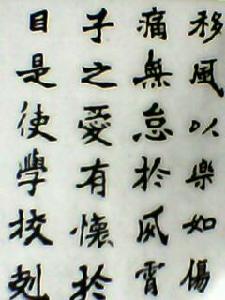 移風以樂如傷
痛無怠於夙宵
子之愛有懷於
目是使學校剋